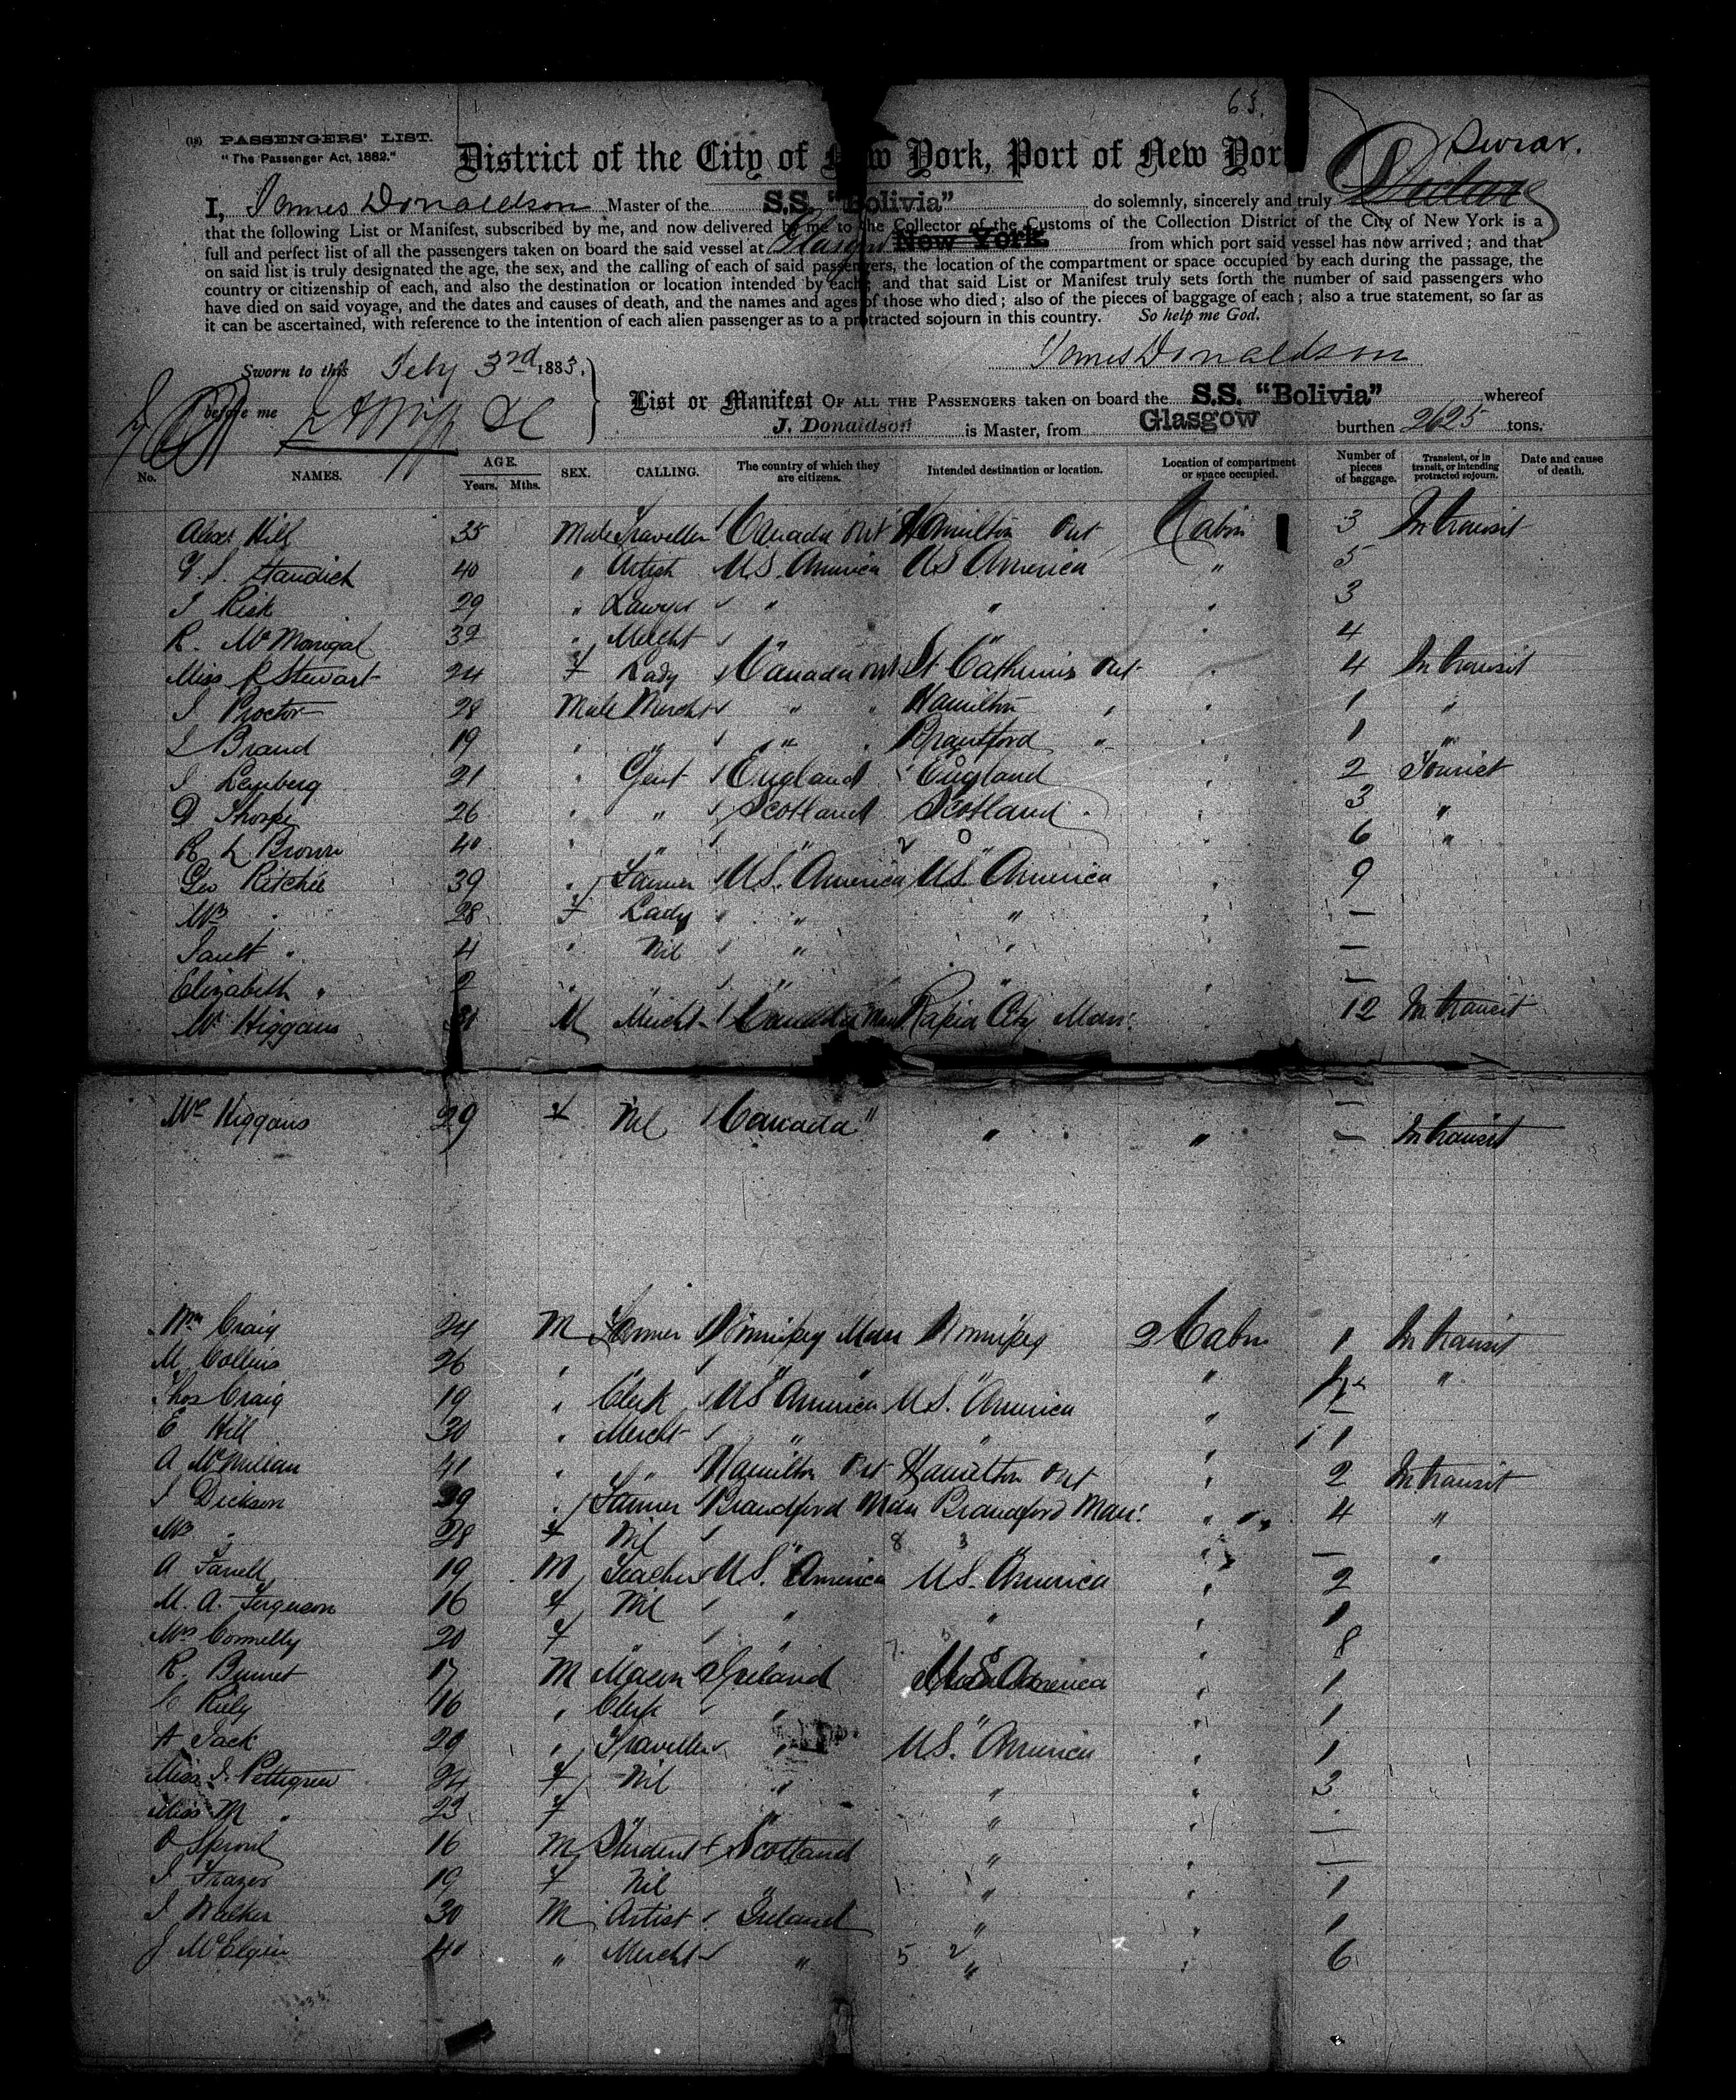 63.
(18) PASSENGERS' LIST.
"The Passenger Act, 1882."
District of the City of New York, Port of New York
Swear.
I, James Donaldson Master of the S.S. "Bolivia" do solemnly, sincerely and truly Declare
that the following List or Manifest, subscribed by me, and now delivered by me to the Collector of the Customs of the Collection District of the City of New York is a
full and perfect list of all the passengers taken on board the said vessel at Glasgow New York. from which port said vessel has now arrived; and that
on said list is truly designated the age, the sex, and the calling of each of said passengers, the location of the compartment or space occupied by each during the passage, the
country or citizenship of each, and also the destination or location intended by each; and that said List or Manifest truly sets forth the number of said passengers who
have died on said voyage, and the dates and causes of death, and the names and ages of those who died; also of the pieces of baggage of each; also a true statement, so far as
it can be ascertained, with reference to the intention of each alien passenger as to a protracted sojourn in this country. So help me God.
James Donaldson
Sworn to this Feby 3rd 1883.
before me
List or Manifest OF ALL THE PASSENGERS taken on board the S.S. "Bolivia" whereof
J. Donaldson is Master, from Glasgow burthen 2625 tons.
No. NAMES. AGE. Years. Mths. SEX. CALLING. The country of which they are citizens. Intended destination or location. Location of compartment or space occupied. Number of pieces of baggage. Transient, or in transit, or intending protracted sojourn. Date and cause of death.
Alexr Hill 35 Male Traveller Canada Ont Hamilton Ont Cabin 3 In transit
G. S. Standich 40 " Artist U.S. America US America " 5
J Risk 29 " Lawyer " " " 3
R. McMonigal 32 " Mercht " " " 4
Miss R Stewart 24 F Lady Canada Ont St Catherins Ont " 4 In transit
J Proctor 28 Male Mercht " " Hamilton " " 1 "
J Brand 19 " " " " Brantford " " 1 "
J. Lenberg 21 " Gent England England " 2 Tourist
D Thorpe 26 " " Scotland Scotland " 3 "
R L Brown 40 " " " " " 6 "
Geo Ritchie 39 " Farmer U.S. America U.S. America " 9
Mrs " 28 F Lady " " " —
Janett " 4 " Nil " " " —
Elizabeth " 2 " " " " " —
Mr Higgans 31 M Mercht Canada Man Rapid City Man. " 12 In transit
Mrs Higgans 29 F Nil Canada " " " — In transit
Wm Craig 24 M Farmer Winnipeg Man Winnipeg 2 Cabin 1 In transit
M Collins 26 " " " " " 1 "
Thos Craig 19 " Clerk US America U.S. America "
E Hill 30 " Mercht " " " 1
A McMillan 41 " " Hamilton Ont Hamilton Ont " 2 In transit
J Dickson 29 " Farmer Brandford Man Brandford Man. " 4 "
Mrs " 28 F Nil " " " — "
A Farrell 19 M Teacher U.S. America U.S. America " 2
M. A. Ferguson 16 F Nil " " " 1
Mrs Connelly 20 F " " " " 8
R. Burnet 17 M Mason Ireland U.S. America " 1
C Riely 16 " Clerk " " " 1
A Jack 20 " Traveller " U.S. America " 1
Miss J. Pettigrew 24 F Nil " " " 3
Miss M " 23 F " " " " —
O Sproul 16 M Student Scotland " " —
J Frazer 19 F Nil " " " 1
J Walker 30 M Artist Ireland " " 1
J McElgin 40 " Mercht " " " 6